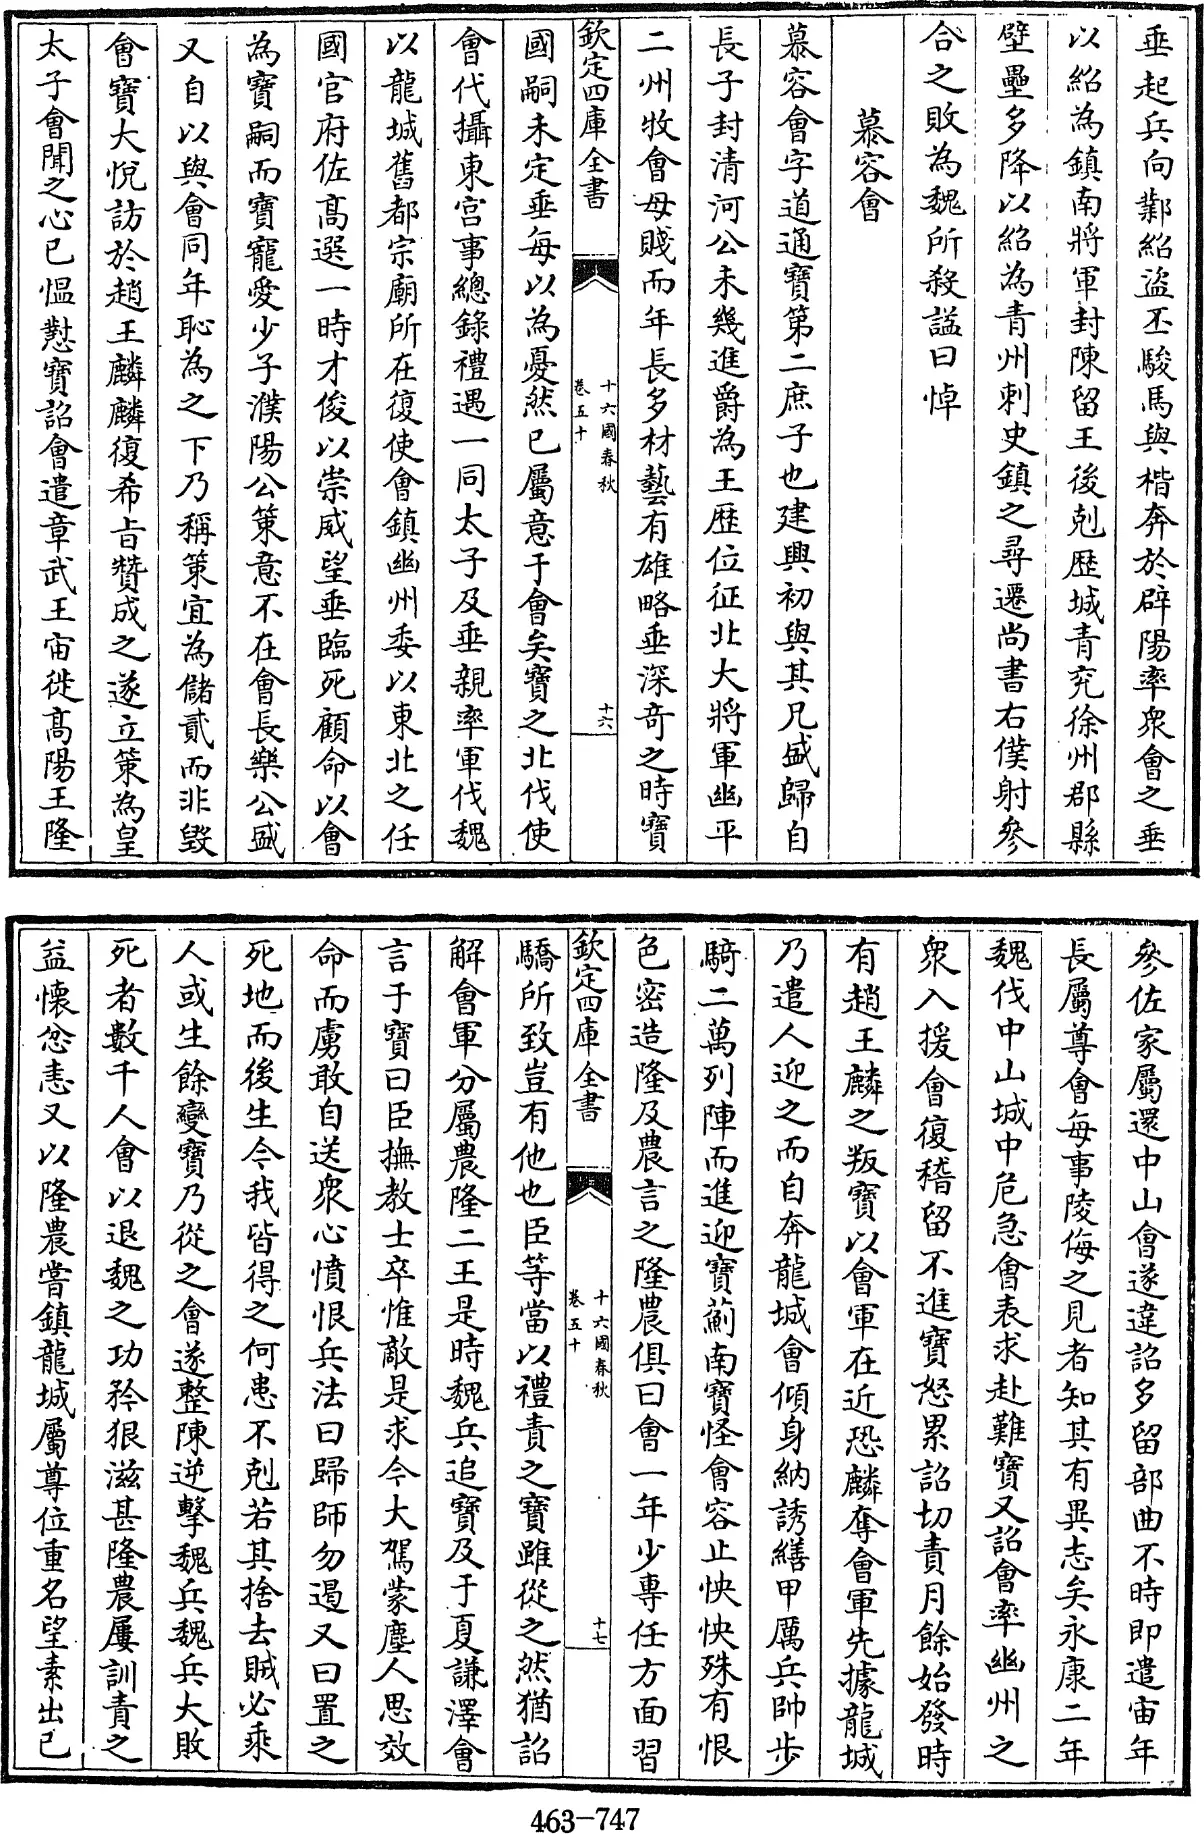 垂起兵向鄴紹盜丕駿馬與楷奔於辟陽率衆會之垂
以紹為鎮南將軍封陳留王後剋歷城青兖徐州郡縣
壁壘多降以紹為青州刺史鎮之尋遷尚書右僕射參
合之敗為魏所殺諡曰悼
慕容會
慕容會字道通寶第二庶子也建興初與其兄盛歸自
長子封清河公未幾進爵為王歴位征北大將軍幽平
二州牧會母賤而年長多材藝有雄略垂深竒之時寶
欽定四庫全書
十六國春秋
卷五十
十六
國嗣未定垂每以為憂然已屬意于會矣寶之北伐使
會代攝東宫事總錄禮遇一同太子及垂親率軍伐魏
以龍城舊都宗廟所在復使會鎮幽州委以東北之任
國官府佐髙選一時才俊以崇威望垂臨死顧命以會
為寶嗣而寶寵愛少子濮陽公策意不在會長樂公盛
又自以與會同年恥為之下乃稱策宜為儲貳而非毀
會寶大悅訪於趙王麟麟復希旨贊成之遂立策為皇
太子會聞之心已愠懟寶詔會遣章武王宙徙髙陽王隆
參佐家屬還中山會遂違詔多留部曲不時即遣宙年
長屬尊會每事陵侮之見者知其有異志矣永康二年
魏伐中山城中危急會表求赴難寶又詔會率幽州之
衆入援會復稽留不進寶怒累詔切責月餘始發時
有趙王麟之叛寶以會軍在近恐麟奪會軍先據龍城
乃遣人迎之而自奔龍城會傾身納誘繕甲厲兵帥步
騎二萬列陣而進迎寶薊南寶怪會容止怏怏殊有恨
色密造隆及農言之隆農俱曰會一年少專任方面習
欽定四庫全書
十六國春秋
卷五十
十七
驕所致豈有他也臣等當以禮責之寶雖從之然猶詔
解會軍分屬農隆二王是時魏兵追寶及于夏謙澤會
言于寶曰臣撫教士卒惟敵是求今大駕蒙塵人思效
命而虜敢自送衆心憤恨兵法曰歸師勿遏又曰置之
死地而後生今我皆得之何患不剋若其捨去賊必乘
人或生餘變寶乃從之會遂整陳逆擊魏兵魏兵大敗
死者數千人會以退魏之功矜狠滋甚隆農屢訓責之
益懷忿恚又以隆農嘗鎮龍城屬尊位重名望素出已
463-747